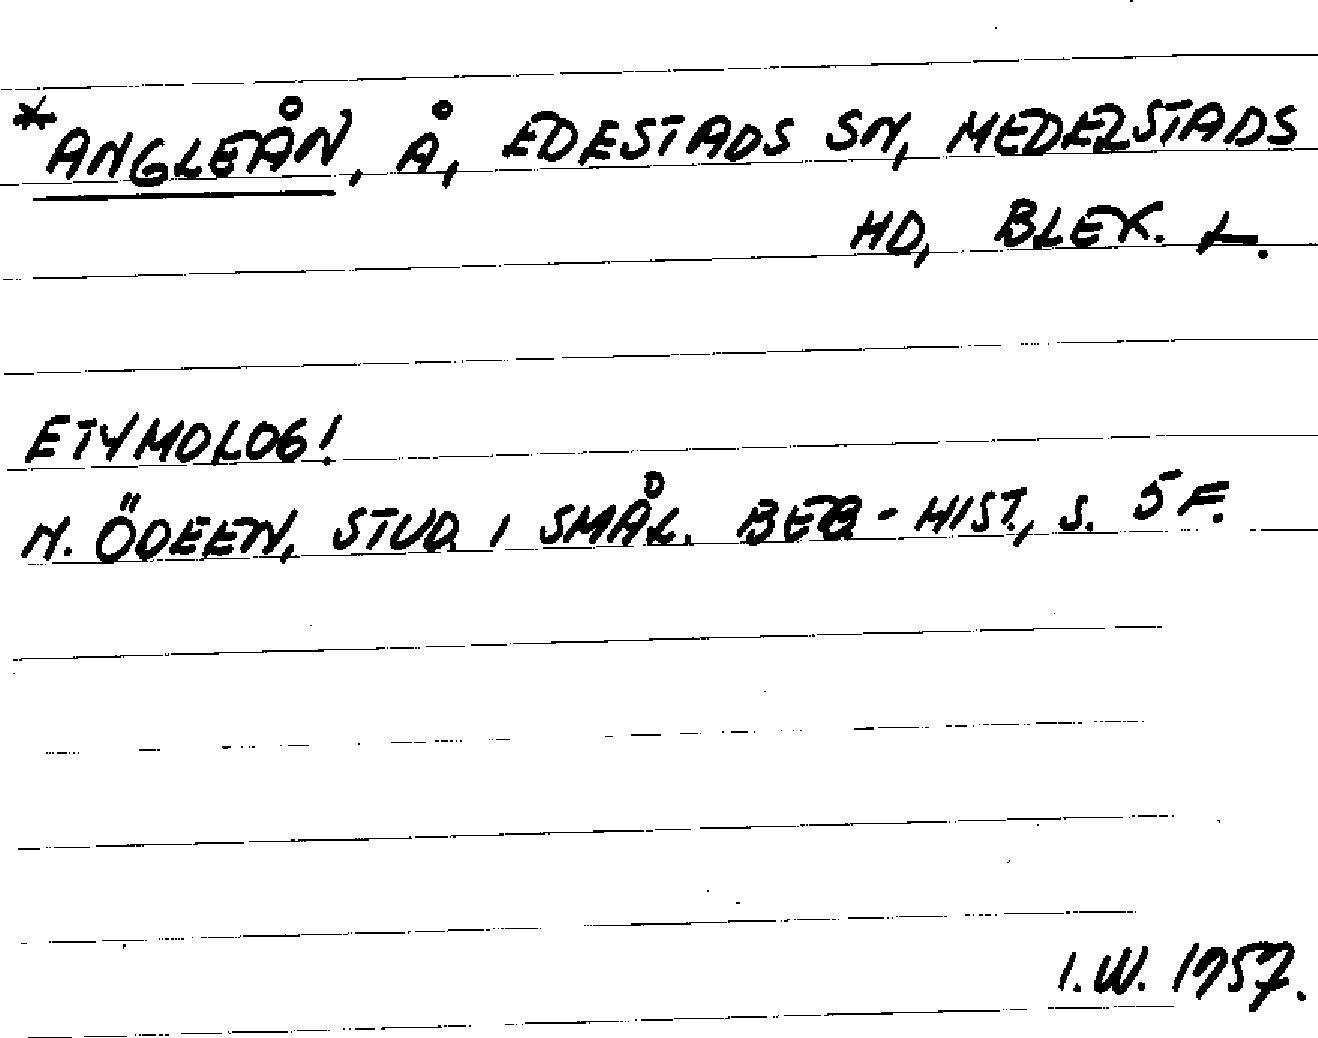 *ANGLEÅN, Å, EDESTADS SN, MEDELSTADS
HD, BLEK. L.
ETYMOLOG!
N. ÖDEEN, STUD. I SMÅL. BEB.-HIST., S. 5 F.
I.W. 1957.